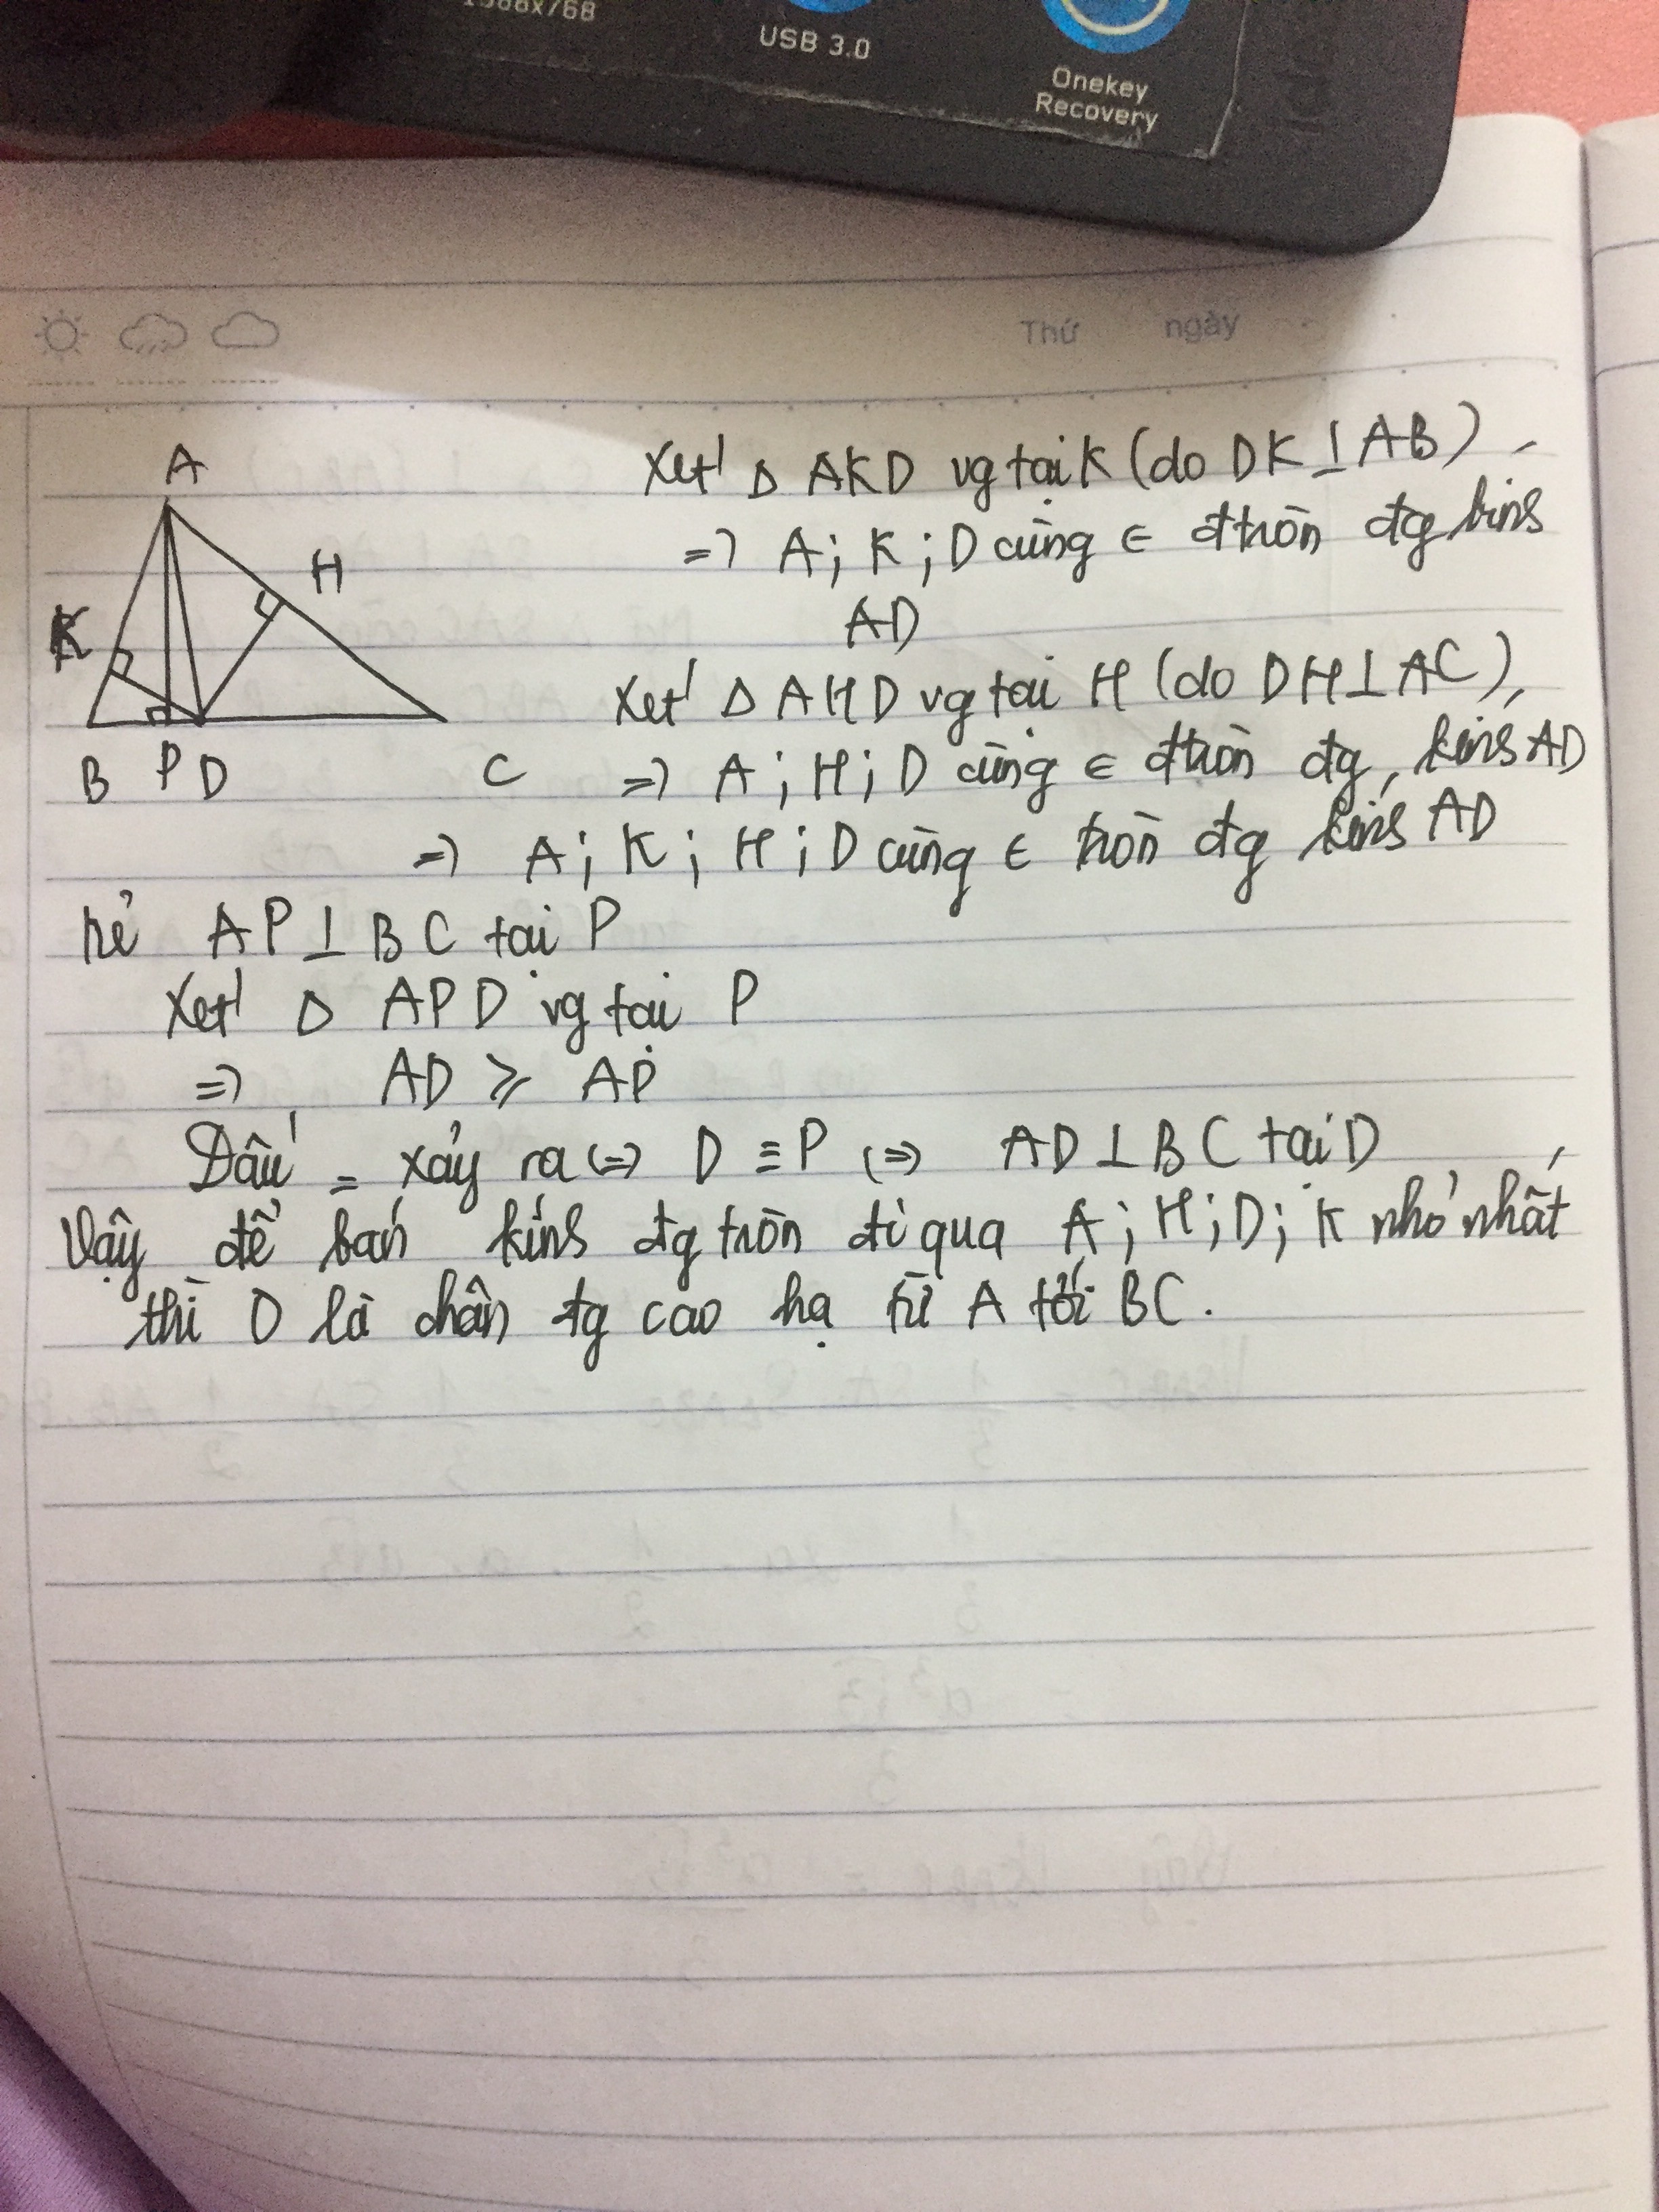 1366x768
USB 3.0
Onekey
Recovery
Thứ ngày
A
H
K
B P D C
Xét Δ AKD vg tại K (do DK ⊥ AB)
=> A; K; D cùng ∈ đ tròn đg kính
AD
Xét Δ AHD vg tại H (do DH ⊥ AC),
=> A; H; D cùng ∈ đ tròn đg kính AD
=> A; K; H; D cùng ∈ tròn đg kính AD
kẻ AP ⊥ BC tại P
Xét Δ APD vg tại P
=> AD ⩾ AP
Dấu = xảy ra <=> D ≡ P <=> AD ⊥ BC tại D
Vậy để bán kính đg tròn đi qua A; H; D; K nhỏ nhất
thì D là chân đg cao hạ từ A tới BC.